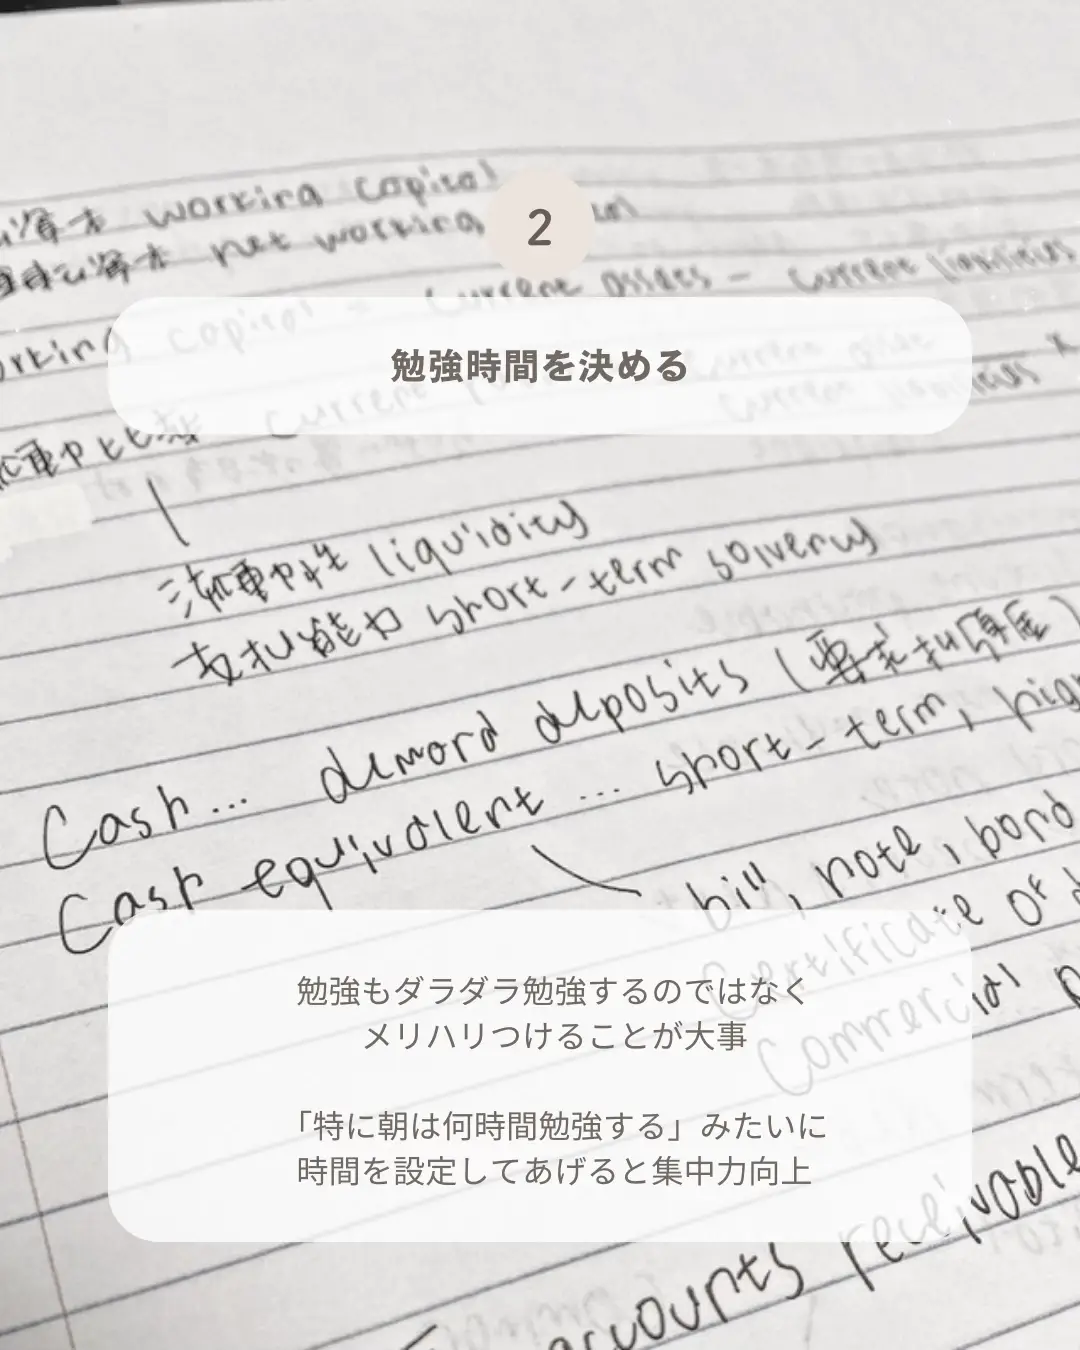 運転資本 working capital
net working
2
working capital = Current assets - Current liabilities
勉強時間を決める
流動比率 Current
current liabilities
流動性 liquidity
支払能力 short-term solvency
Cash... demand deposits (要求払預金)
Cash equivalent ... short-term, high
bill, note, bond
Certificate of
Commercial
勉強もダラダラ勉強するのではなく
メリハリつけることが大事
「特に朝は何時間勉強する」みたいに
時間を設定してあげると集中力向上
accounts receivable